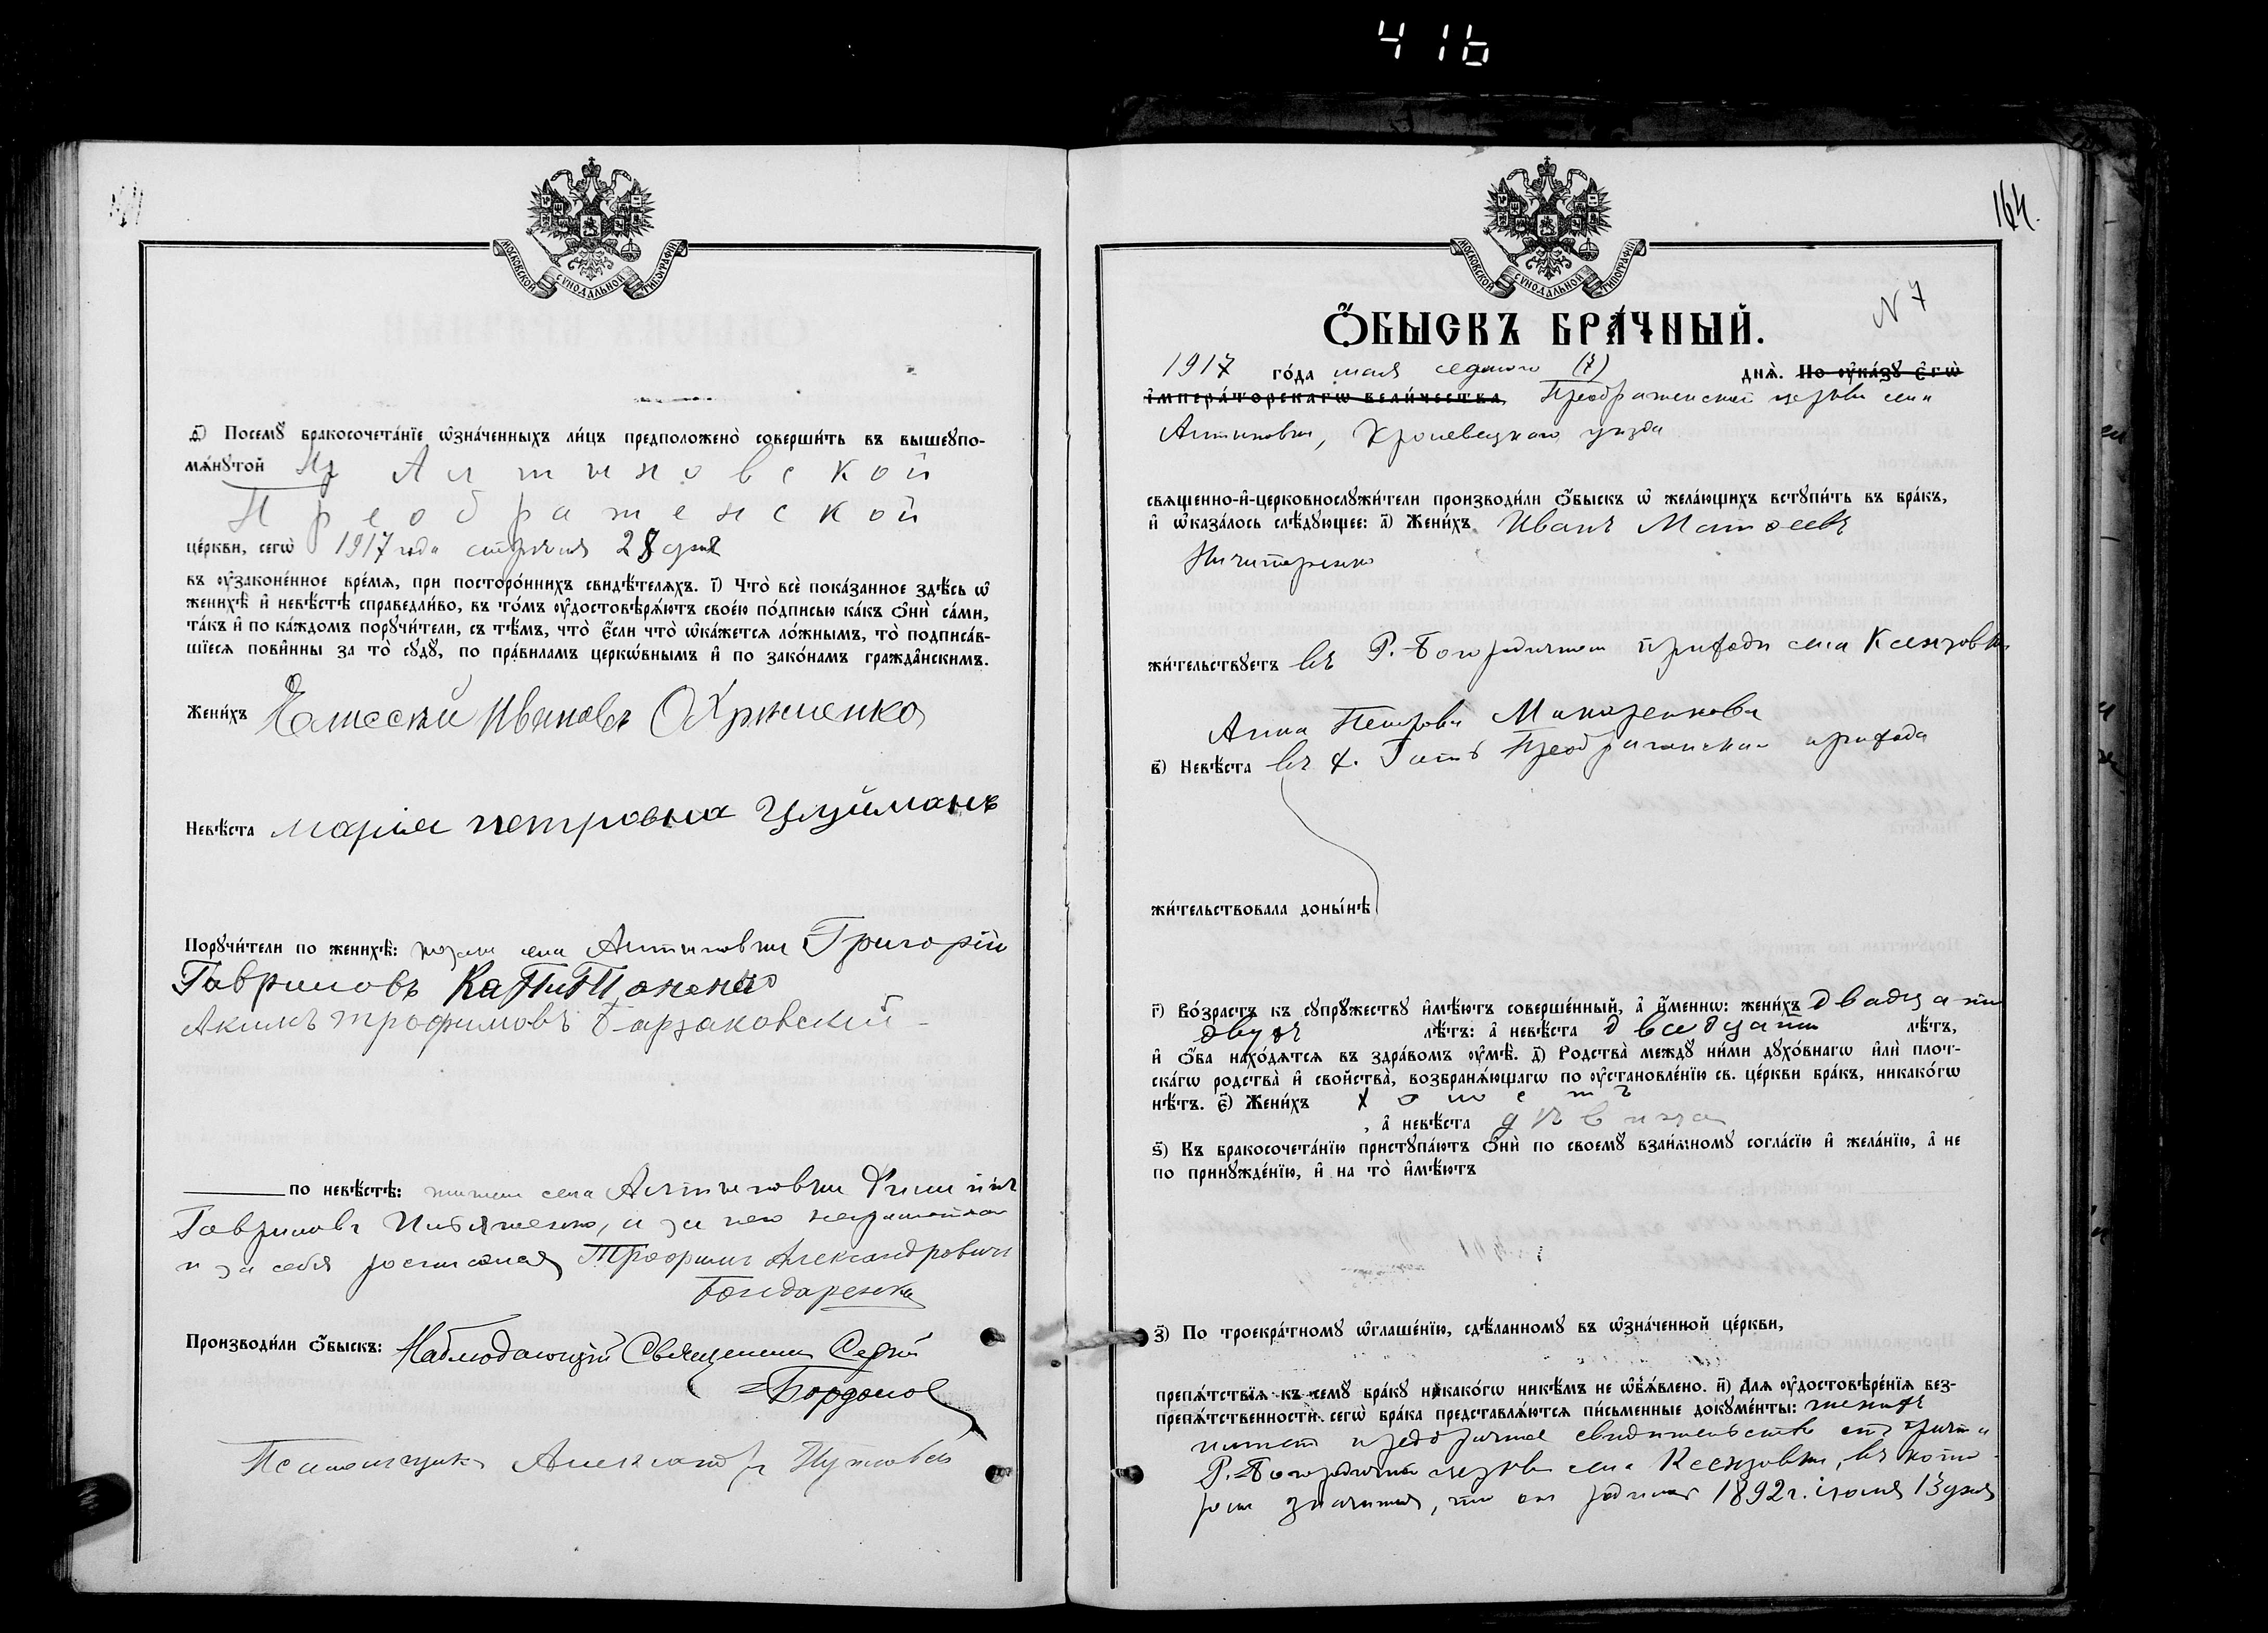 416
МОСКОВСКОЙ СѴНОДАЛЬНОЙ ТИПОГРАФІИ
ѳ҃) Посемꙋ̀ бракосочета́нїе ѡ҆зна́ченныхъ ли́цъ предположено̀ соверши́ть въ вышеꙋпо-
мѧ́нꙋтой Алтыновской
Преображенской
це́ркви, сегѡ̀ 1917 года апрѣля 28 дня
въ ᲂу҆законе́нное вре́мѧ, при посторо́ннихъ свидѣ́телѧхъ. і҃) Что̀ всѐ пока́занное здѣ́сь ѡ҆
женихѣ̀ и҆ невѣ́стѣ справедли́во, въ то́мъ ᲂу҆достовѣрѧ́ютъ свое́ю по́дписью ка́къ ѻ҆нѝ са́ми,
та́къ и҆ по ка́ждомъ порꙋчи́тели, съ тѣ́мъ, что̀ є҆́сли что̀ ѡ҆ка́жетсѧ ло́жнымъ, то̀ подписа́в-
шїесѧ пови́нны за то̀ сꙋдꙋ̀, по пра́виламъ церкѡ́внымъ и҆ по зако́намъ гражда́нскимъ.
Жени́хъ Елисеѣй Ивановъ Охрименко
Невѣ́ста Марія Петровна Цлуйманъ
Порꙋчи́тели по женихѣ̀: села Алтыновки Григорій
Гавриловъ Капитоненко
Акимъ Трофимовъ Барзаковский
по невѣ́стѣ: житель села Алтыновки
Гавриловъ а за него неграмотнаго
и за себя росписался Трофимъ Александровичъ
Бондаренко
Производи́ли ѻ҆́быскъ: Наблюдающій Священникъ
Псаломщикъ Александръ
164.
МОСКОВСКОЙ СѴНОДАЛЬНОЙ ТИПОГРАФІИ
N 7
Ѻ҆́БЫСКЪ БРА́ЧНЫЙ.
1917 го́да мая седьмого (7) днѧ̀. По ᲂу҆ка́зꙋ є҆гѡ̀
і҆мпера́торскагѡ вели́чества, Преображенской церкви села
Алтыновки, Кролевецкаго уѣзда
свѧщенно-и҆-церковнослꙋжи́тели производи́ли ѻ҆́быскъ ѡ҆ жела́ющихъ встꙋпи́ть въ бра́къ,
и҆ ѡ҆каза́лось слѣ́дꙋющее: а҃) Жени́хъ Иванъ Матѳеевъ
Ничипоренко
жи́тельствꙋетъ въ Р.-Богородичномъ приходѣ села Ксензовки
Анна Петрова Макаренкова
в҃) Невѣ́ста въ х. Гать Преображенскаго прихода
жи́тельствовала доны́нѣ
г҃) Во́зрастъ къ сꙋпрꙋ́жествꙋ и҆мѣ́ютъ соверше́нный, а҆ и҆́меннѡ: жени́хъ двадцати
двухъ лѣ́тъ: а҆ невѣ́ста двадцати лѣ́тъ,
и҆ ѻ҆́ба нахо́дѧтсѧ въ здра́вомъ ᲂу҆мѣ̀. д҃) Родства̀ междꙋ̀ ни́ми дꙋхо́внагѡ и҆лѝ плот-
ска́гѡ родства̀ и҆ сво́йства̀, возбранѧ́ющагѡ по ᲂу҆становле́нїю св. це́ркви бра́къ, никако́гѡ
нѣ́тъ. є҃) Жени́хъ холостъ
, а҆ невѣ́ста дѣвица
ѕ҃) Къ бракосочета́нїю пристꙋпа́ютъ ѻ҆нѝ по своемꙋ̀ взаи́мномꙋ согла́сїю и҆ жела́нїю, а҆ не
по принꙋжде́нїю, и҆ на то̀ и҆мѣ́ютъ
з҃) По троекра́тномꙋ ѡ҆глаше́нїю, сдѣ́ланномꙋ въ ѡ҆зна́ченной це́ркви,
препѧ́тствїѧ къ семꙋ̀ бра́кꙋ никако́гѡ никѣ́мъ не ѡ҆б̾ѧ́влено. и҃) Длѧ ᲂу҆достовѣре́нїѧ без-
препѧ́тственности сегѡ̀ бра́ка представлѧ́ютсѧ пи́сьменные докꙋме́нты: женихъ
имѣетъ предбрачное свидѣтельство отъ причта
Р.-Богородичной церкви села Ксензовки, въ кото-
ромъ значится, что онъ родился 1892 г. іюня 13 дня